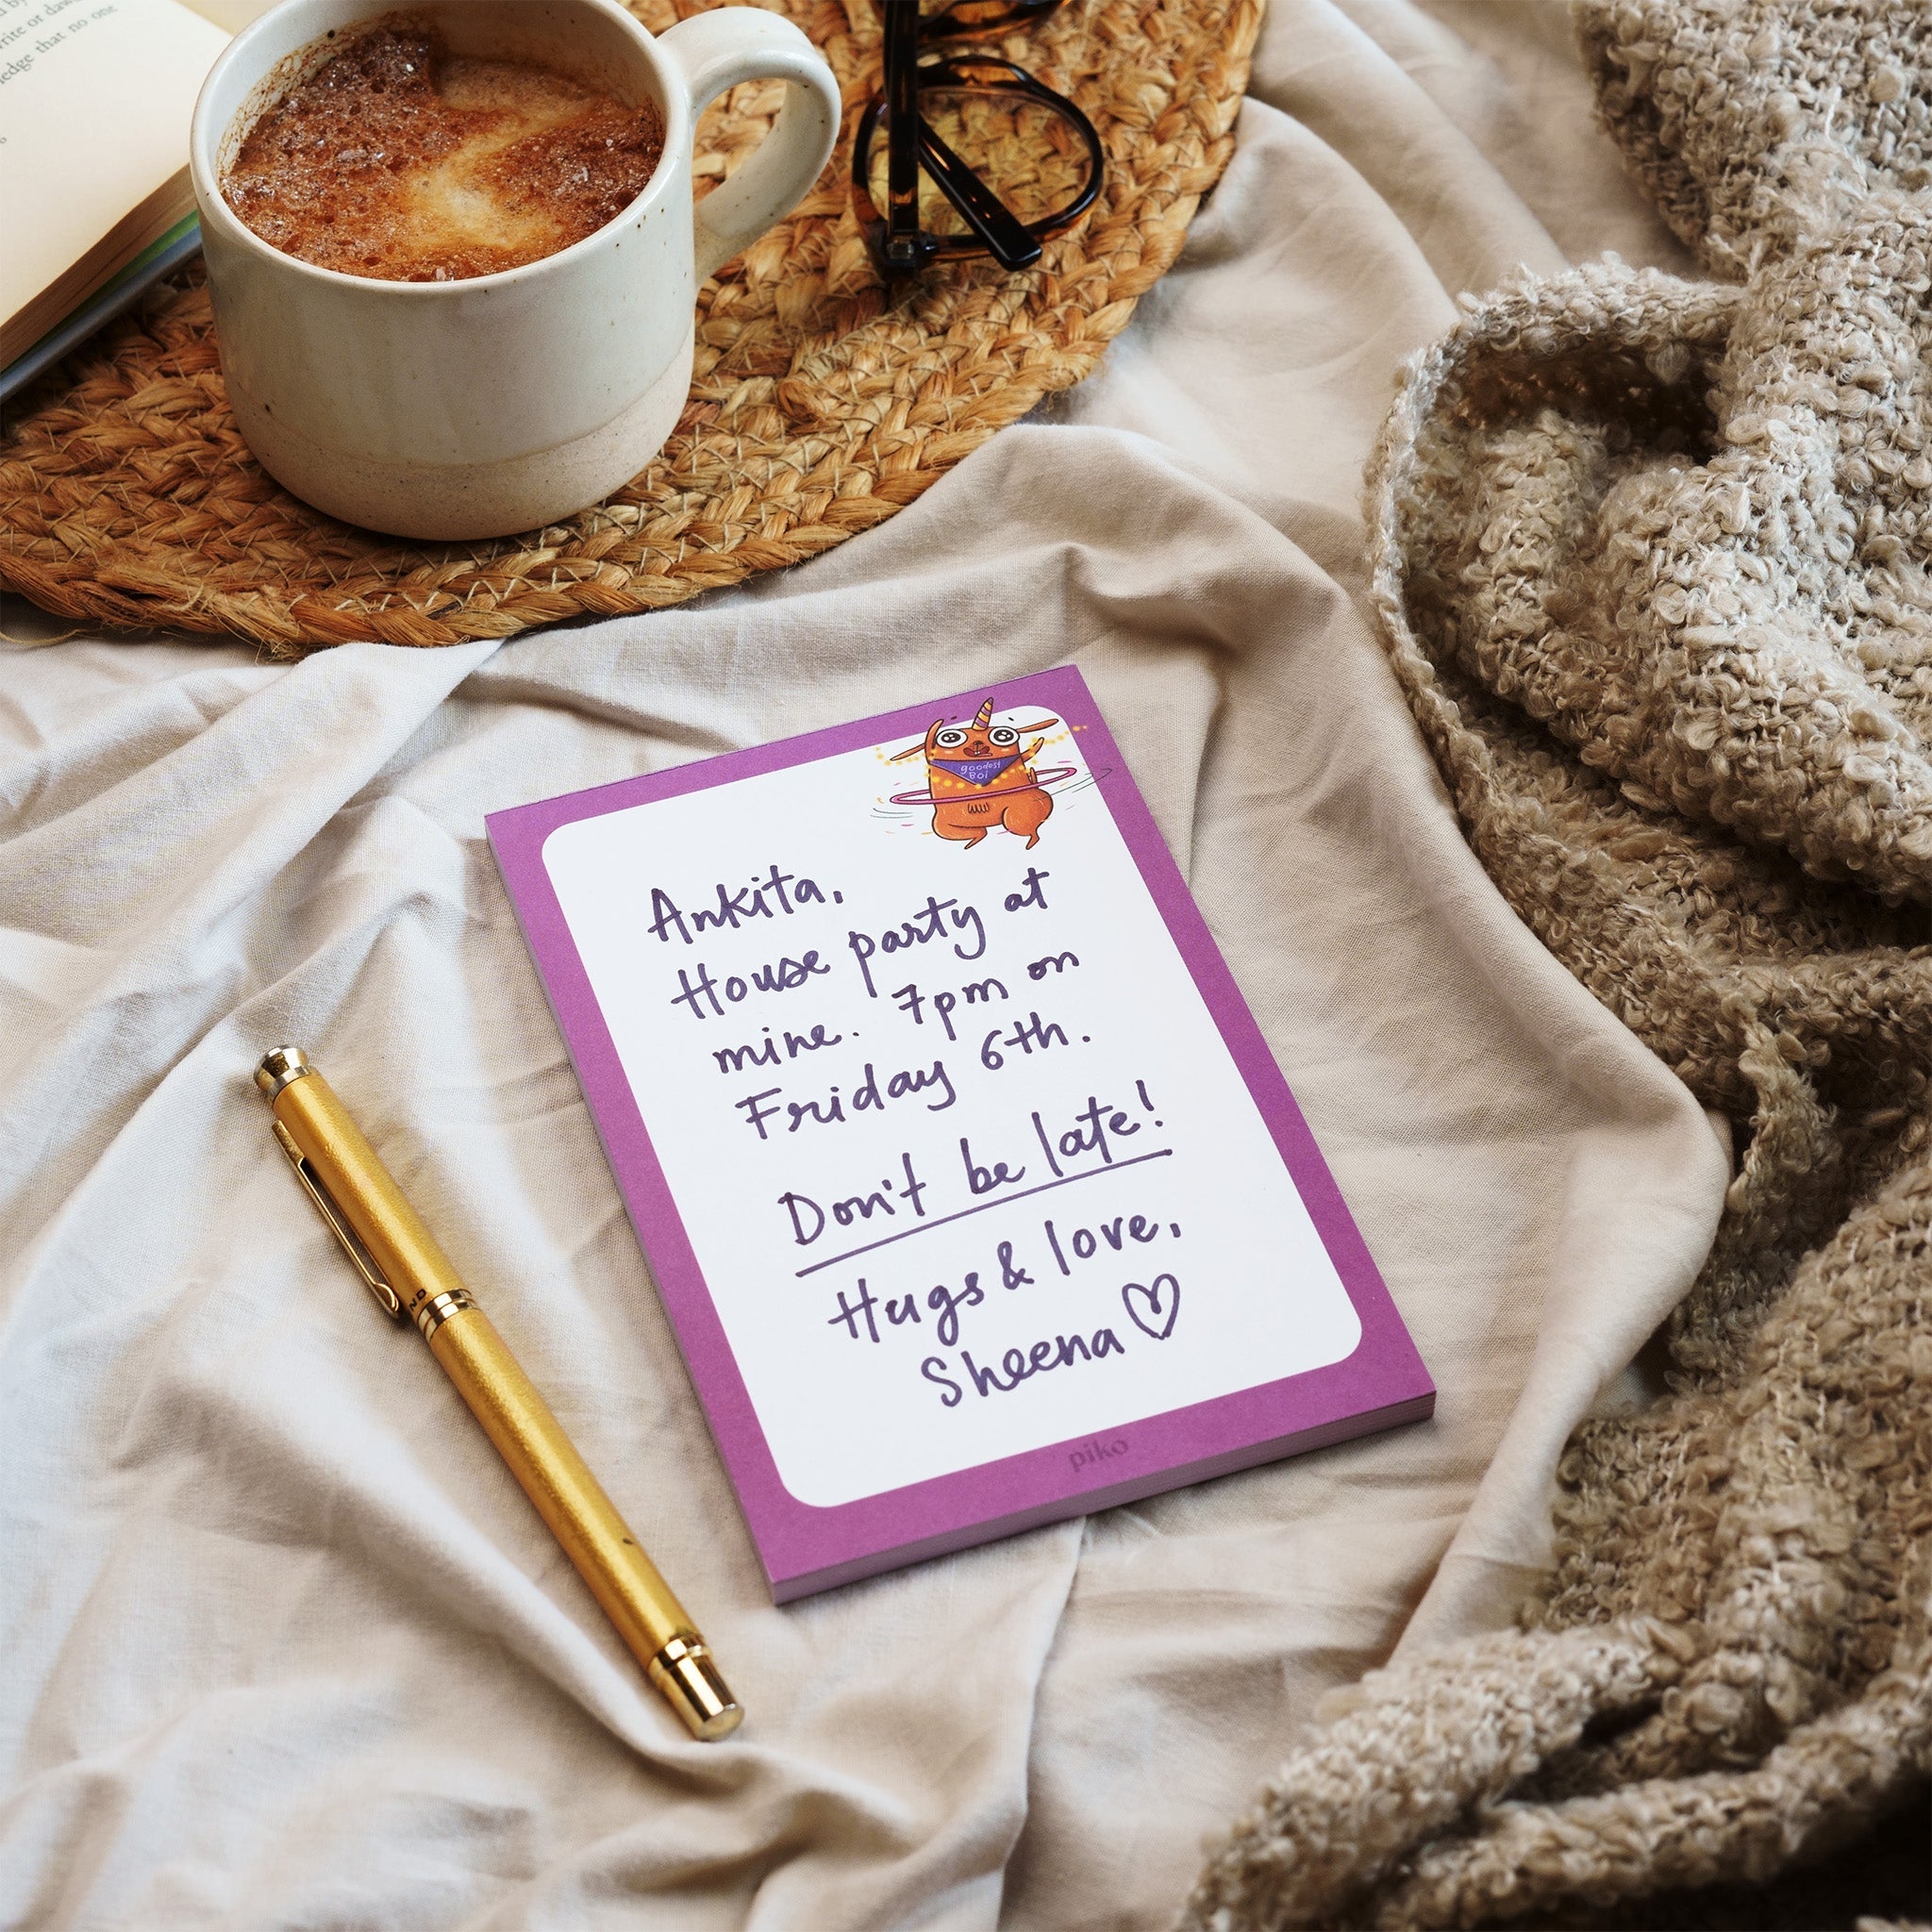 rite or daw
ledge that no one
goodest
BOI
Ankita,
House party at
mine. 7pm on
Friday 6th.
Don't be late!
Hugs & love,
Sheena
piko
ND